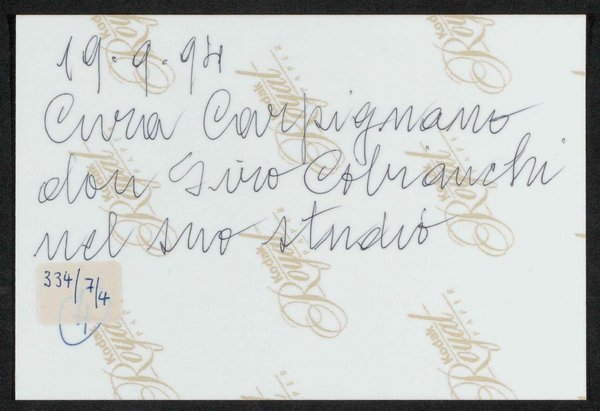 19.9.94
Cura Carpignano
don Siro Cobianchi
nel suo studio
334/7/4
4
Kodak
Royal
PAPER